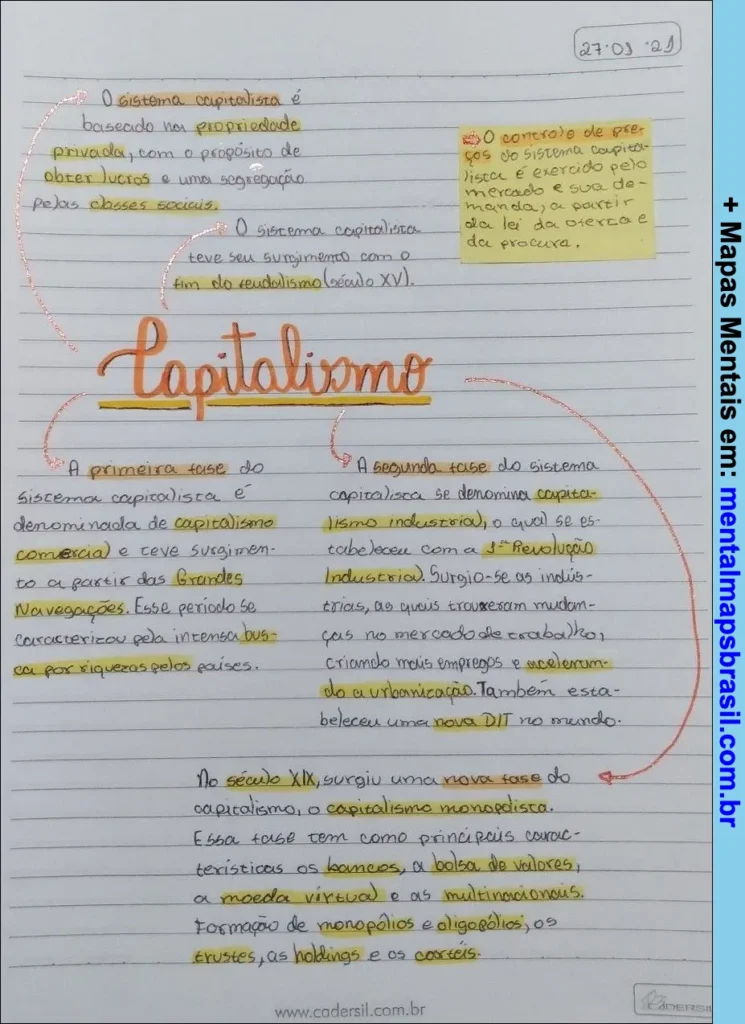 27.01.21
O sistema capitalista é
baseado na propriedade
privada, com o propósito de
obter lucros e uma segregação
pelas classes sociais.
O controle de pre-
ços do sistema capita-
lista é exercido pelo
mercado e sua de-
manda, a partir
da lei da oferta e
da procura.
O sistema capitalista
teve seu surgimento com o
fim do feudalismo (século XV).
Capitalismo
A primeira fase do
sistema capitalista é
denominada de capitalismo
comercial e teve surgimen-
to a partir das Grandes
Navegações. Esse período se
caracterizou pela intensa bus-
ca por riquezas pelos países.
A segunda fase do sistema
capitalista se denomina capita-
lismo industrial, o qual se es-
tabeleceu com a 1ª Revolução
Industrial. Surgio-se as indús-
trias, as quais trouxeram mudan-
ças no mercado de trabalho,
criando mais empregos e aceleran-
do a urbanização. Também esta-
beleceu uma nova DIT no mundo.
No século XIX, surgiu uma nova fase do
capitalismo, o capitalismo monopolista.
Essa fase tem como principais carac-
terísticas os bancos, a bolsa de valores,
a moeda virtual e as multinacionais.
Formação de monopólios e oligopólios, os
trustes, as holdings e os cartéis.
www.cadersil.com.br
CADERSIL
+ Mapas Mentais em: mentalmapsbrasil.com.br